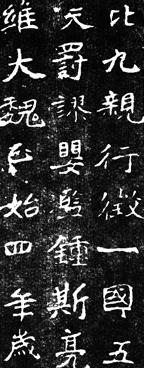 比九親行徵一國五
天罰謬嬰濫鍾斯亮
維大魏正始四年歲